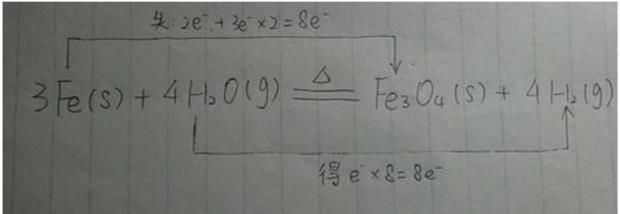 失:2e⁻+3e⁻×2=8e⁻
3Fe(s)+4H₂O(g) ≜ Fe₃O₄(s)+4H₂(g)
得e⁻×8=8e⁻